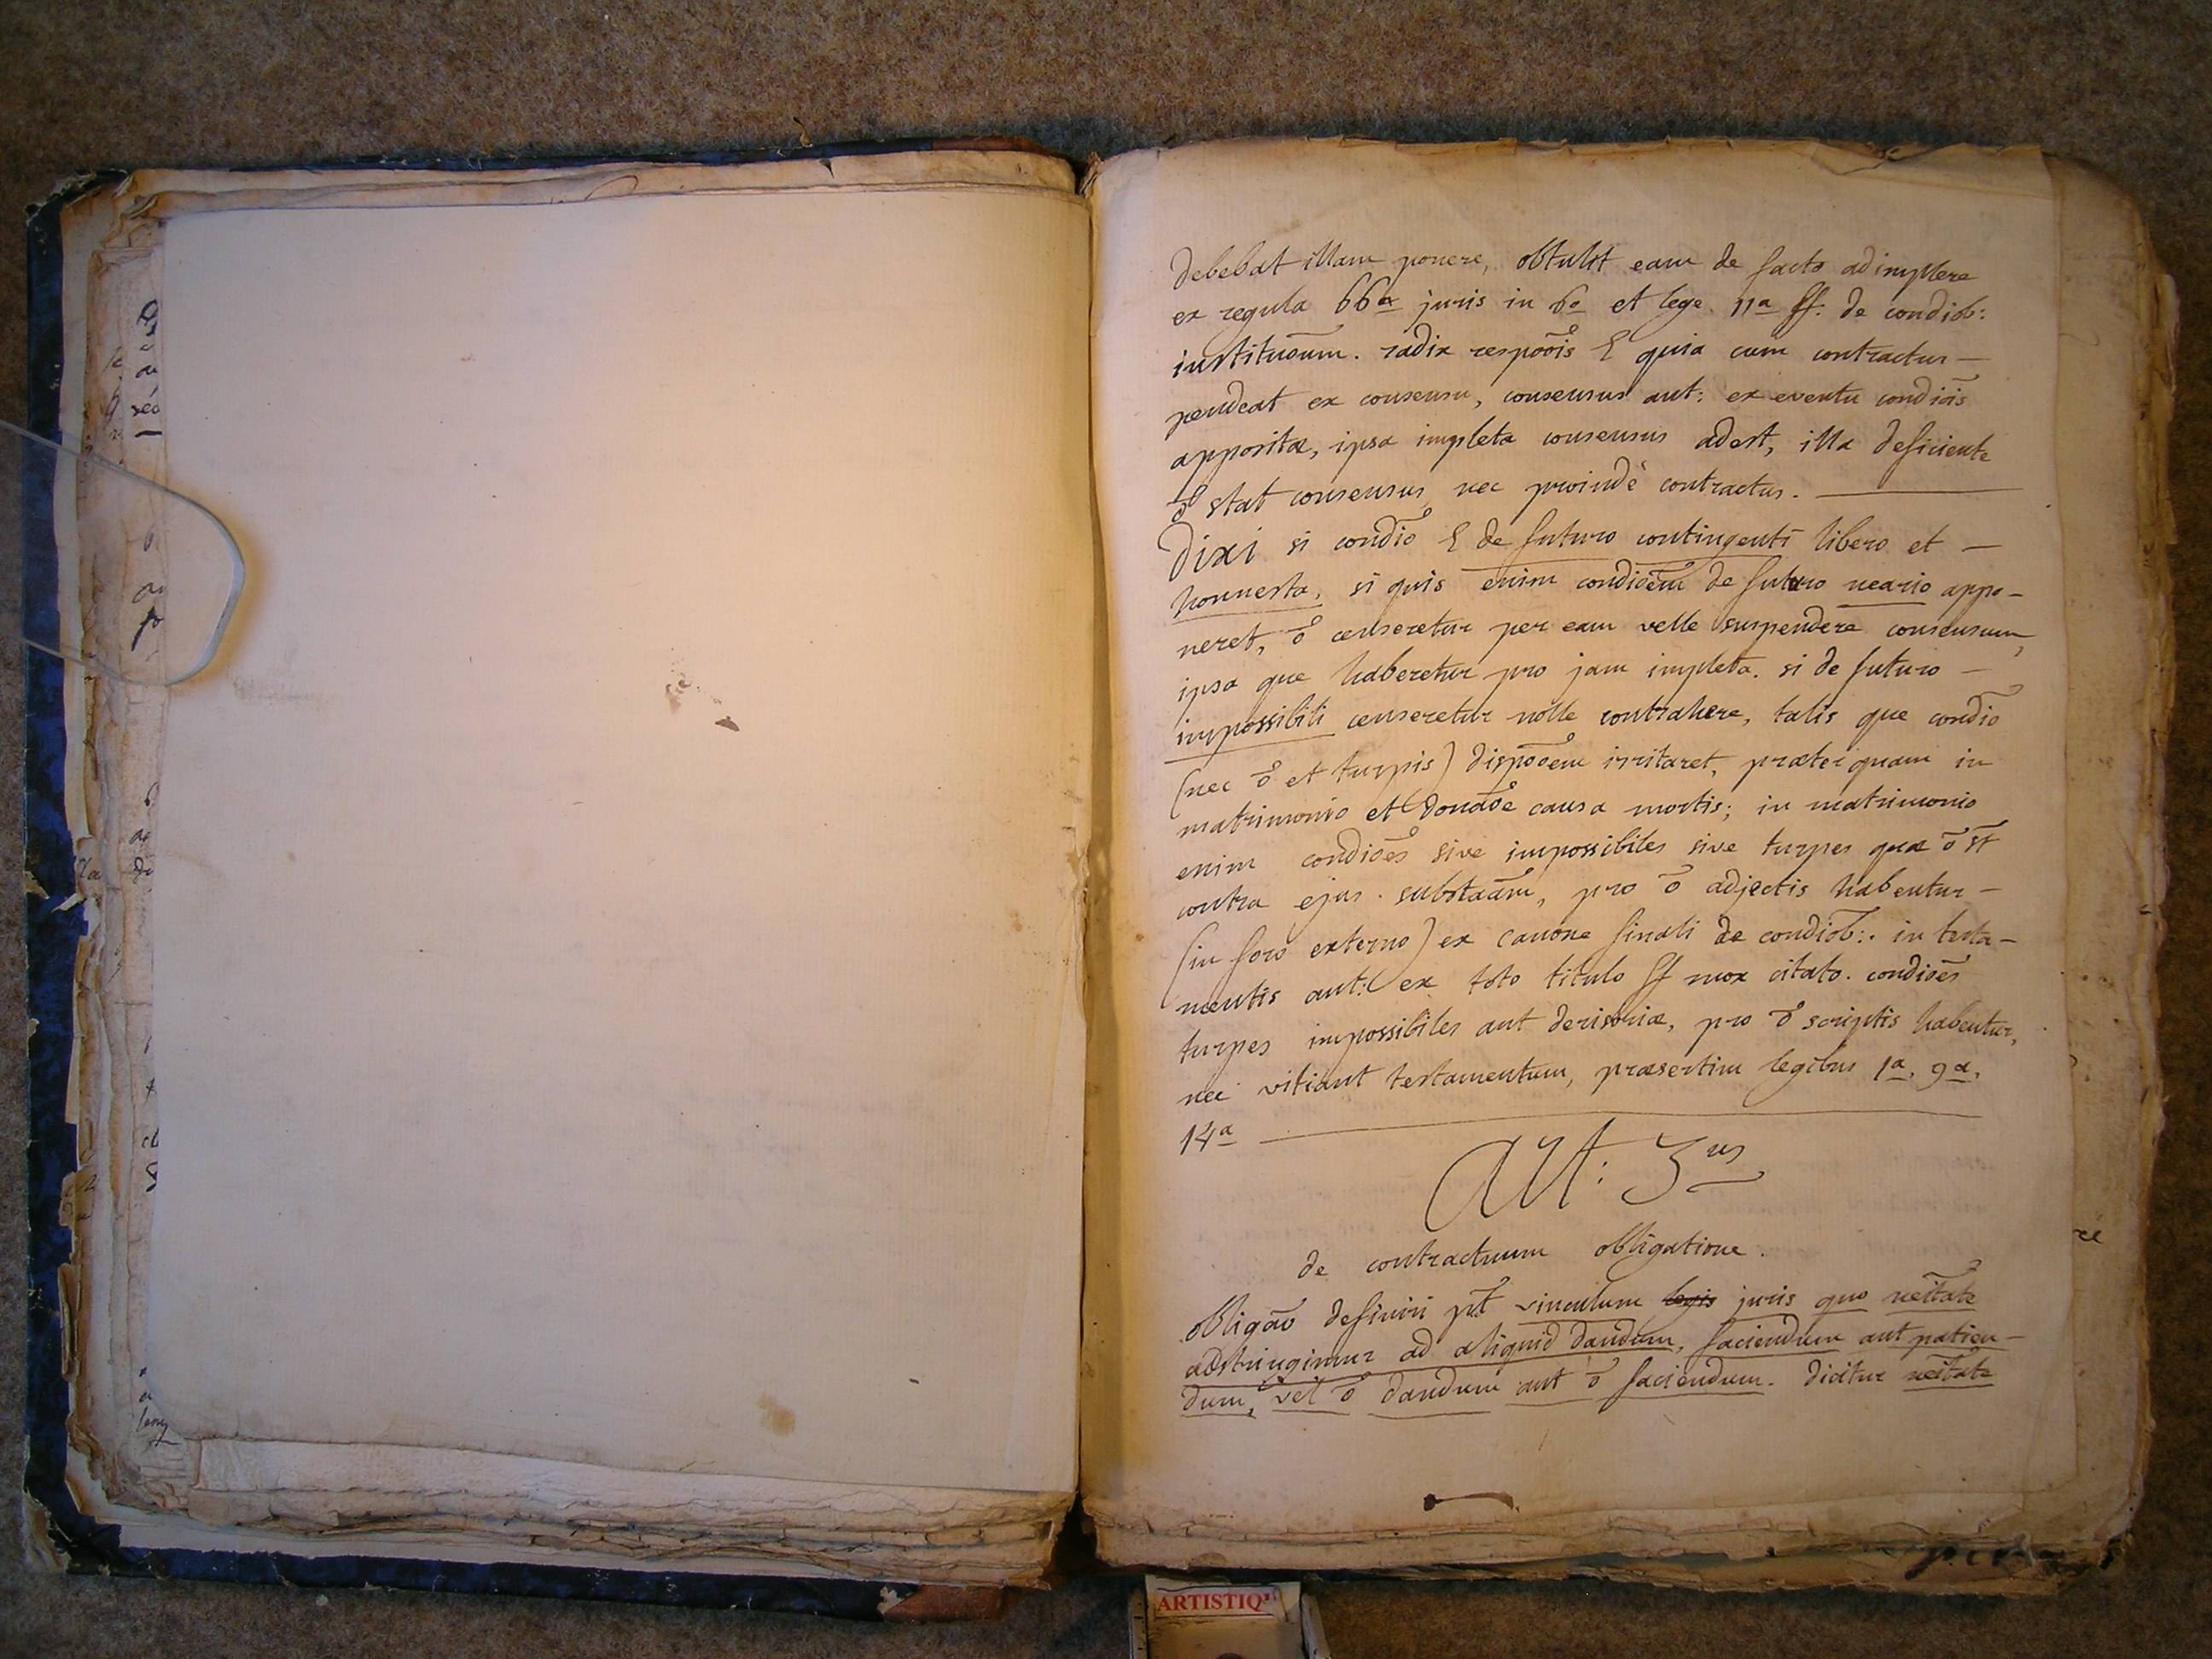 debebat illam ponere, obtulit eam de facto adimplere
ex regula 66a juris in 6o et lege 11a ff. de condiõb:
instituõum. radix respoõis ē quia cum contractus —
pendeat ex consensu, consensus aut: ex eventu condiõis
appositæ, ipsa impleta consensus adest, illa deficiente
õ stat consensus, nec proindè contractus. —
Dixi si condiõ ē de futuro contingenti libero et —
honnesta, si quis enim condiõem de futuro neārio appo-
neret, õ censeretur per eam velle suspendere consensum,
ipsa que haberetur pro jam impleta. si de futuro —
impossibili censeretur nolle contrahere, talis que condiõ
(nec õ et turpis) dispoõem irritaret, præter quam in
matrimonio et donaõe causa mortis; in matrimonio
enim condiões sive impossibiles sive turpes quæ õ st̃
contra ejus substaãm, pro õ adjectis habentur —
(in foro externo) ex canone finali de condiõb:. in testa-
mentis aut: ex toto titulo ff mox citato. condiões
turpes impossibiles aut derisoriæ, pro õ scriptis habentur,
nec vitiant testamentum, præsertim legibus 1a. 9a.
14a —
Art: 3us
de contractuum obligatione.
obligaõ definiri pt̃ vinculum legis juris quo neĩtate
adstringimur ad aliquid dandum, faciendum aut patien-
dum, vel õ dandum aut õ faciendum. dicitur neĩtate
ARTISTIQ